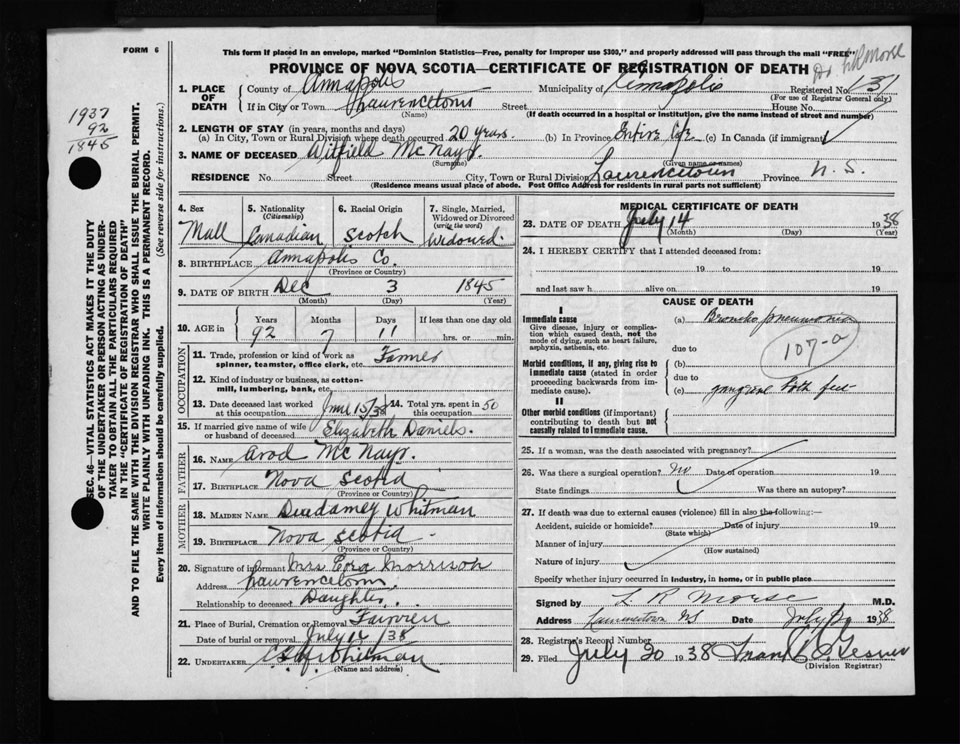 FORM 6
This form if placed in an envelope, marked "Dominion Statistics—Free, penalty for improper use $300," and properly addressed will pass through the mail "FREE"
PROVINCE OF NOVA SCOTIA—CERTIFICATE OF REGISTRATION OF DEATH
Dr L R Morse
1937
92
1845
1. PLACE OF DEATH
County of Annapolis Municipality of Annapolis Registered No. 131
(For use of Registrar General only)
If in City or Town Lawrencetown Street House No.
(Name) (If death occurred in a hospital or institution, give its name instead of street and number)
2. LENGTH OF STAY (in years, months and days)
(a) In City, Town or Rural Division where death occurred 20 years. (b) In Province Entire life (c) In Canada (if immigrant)
3. NAME OF DECEASED Witfield McNayr.
(Surname) (Given name or names)
RESIDENCE No. Street City, Town or Rural Division Lawrencetown Province N. S.
(Residence means usual place of abode. Post Office Address for residents in rural parts not sufficient)
SEC. 46—VITAL STATISTICS ACT MAKES IT THE DUTY
OF THE UNDERTAKER OR PERSON ACTING AS UNDER-
TAKER TO OBTAIN ALL THE PARTICULARS REQUIRED
IN THE "CERTIFICATE OF REGISTRATION OF DEATH"
AND TO FILE THE SAME WITH THE DIVISION REGISTRAR WHO SHALL ISSUE THE BURIAL PERMIT.
WRITE PLAINLY WITH UNFADING INK. THIS IS A PERMANENT RECORD.
Every item of information should be carefully supplied. (See reverse side for instructions.)
4. Sex 5. Nationality (Citizenship) 6. Racial Origin 7. Single, Married, Widowed or Divorced (write the word)
Mall Canadian Scotch Widowed.
8. BIRTHPLACE Annapolis Co.
(Province or Country)
9. DATE OF BIRTH Dec 3 1845
(Month) (Day) (Year)
10. AGE in Years Months Days If less than one day old
92 7 11 hrs. or min.
OCCUPATION
11. Trade, profession or kind of work as Farmer
spinner, teamster, office clerk, etc.
12. Kind of industry or business, as cotton-
mill, lumbering, bank, etc.
13. Date deceased last worked at this occupation June 15/38 14. Total yrs. spent in this occupation 50
15. If married give name of wife or husband of deceased Elizabeth Daniels.
FATHER
16. Name Arod McNayr.
17. Birthplace Nova Scotia
(Province or Country)
MOTHER
18. Maiden Name Diadamey Whitman
19. Birthplace Nova Scotia -
(Province or Country)
20. Signature of informant Mrs Ezra Morrison
Address Lawrencetown.
Relationship to deceased Daughter.
21. Place of Burial, Cremation or Removal Fairview
Date of burial or removal July 16 /38
22. UNDERTAKER Whitman
(Name and address)
MEDICAL CERTIFICATE OF DEATH
23. DATE OF DEATH July 14 1938
(Month) (Day) (Year)
24. I HEREBY CERTIFY that I attended deceased from:
19 to 19
and last saw h alive on 19
CAUSE OF DEATH
I
Immediate cause
Give disease, injury or complica-
tion which caused death, not the
mode of dying, such as heart failure,
asphyxia, asthenia, etc.
(a) Broncho pneumonia
107-a
due to
Morbid conditions, if any, giving rise to
immediate cause (stated in order
proceeding backwards from im-
mediate cause).
(b)
due to
(c) gangrene both feet
II
Other morbid conditions (if important)
contributing to death but not
causally related to immediate cause.
25. If a woman, was the death associated with pregnancy?
26. Was there a surgical operation? no Date of operation 19
State findings Was there an autopsy?
27. If death was due to external causes (violence) fill in also the following:—
Accident, suicide or homicide? Date of injury 19
(State which)
Manner of injury
(How sustained)
Nature of injury
Specify whether injury occurred in industry, in home, or in public place
Signed by L. R Morse M.D.
Address Lawrencetown NS Date July 1938
28. Registrar's Record Number
29. Filed July 20 1938 Frank Gesner
(Division Registrar)